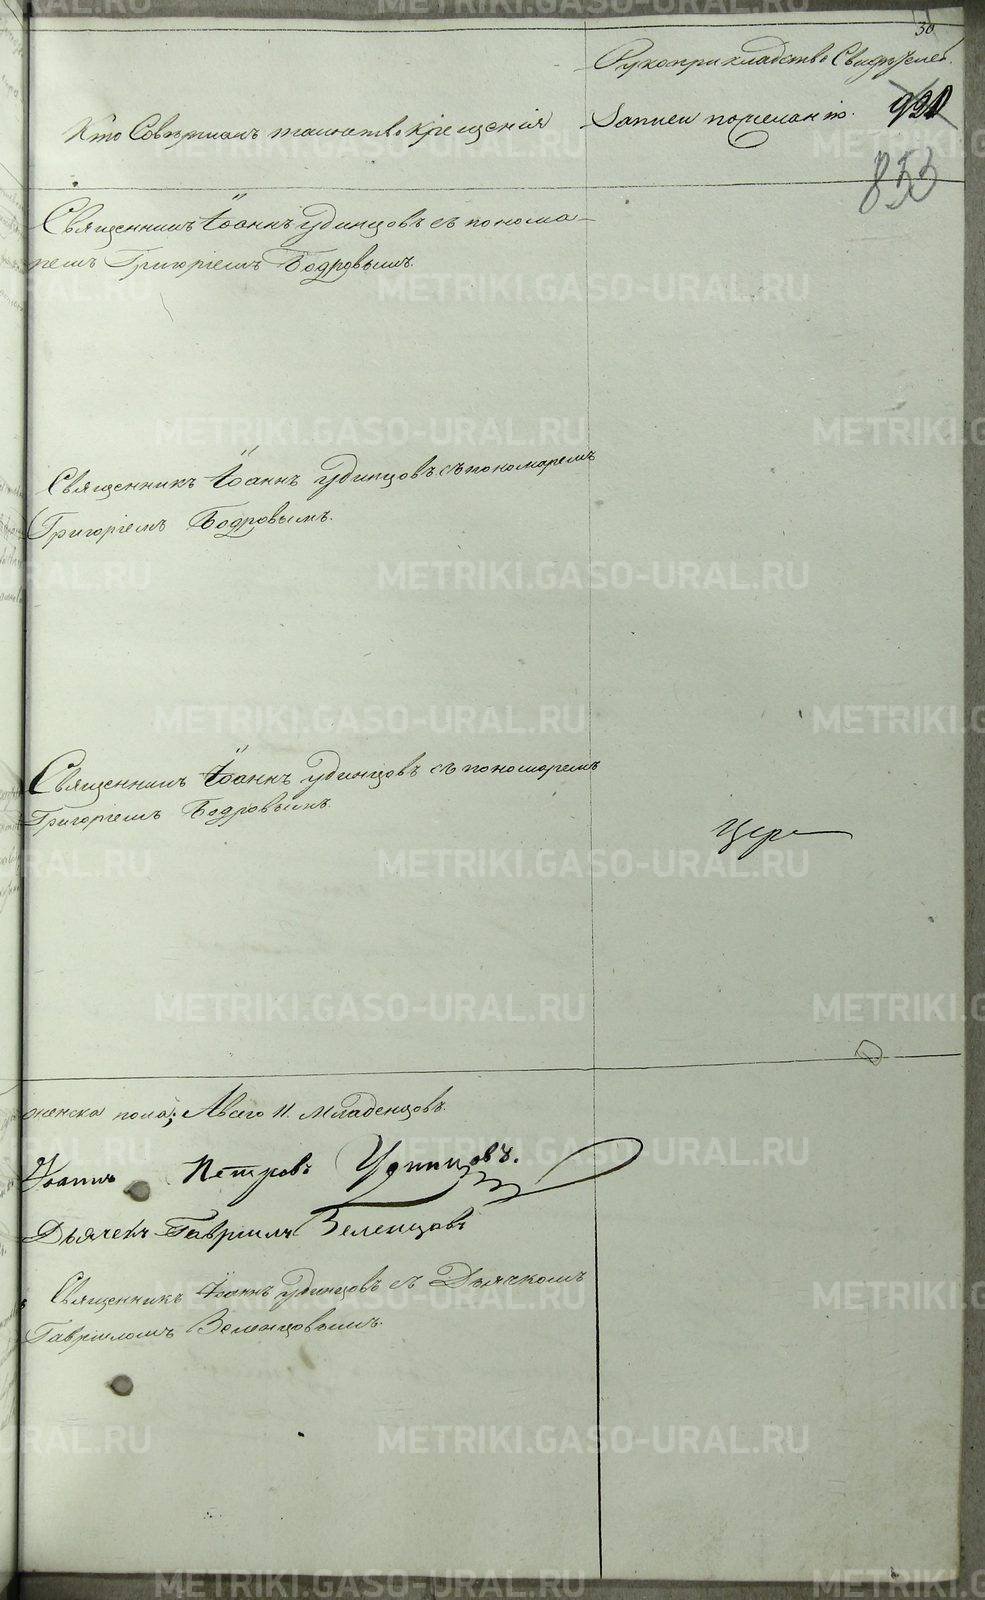 30
Рукоприкладство Свидѣтелей
Кто Совершалъ таинство Крещенія
Записи по желанію.
921
833
Священникъ Іоаннъ Удинцовъ съ понома-
ремъ Григоріемъ Бодровымъ.
Священникъ Іоаннъ Удинцовъ съ пономаремъ
Григоріемъ Бодровымъ.
Священникъ Іоаннъ Удинцовъ съ пономаремъ
Григоріемъ Бодровымъ
Цер
женска пола; Авсего 11. Младенцовъ.
Іоаннъ Петровъ Удинцовъ.
Дьячекъ Гавріилъ Зеленцовъ
Священникъ Іоаннъ Удинцовъ съ Дьячкомъ
Гавріиломъ Зеленцовымъ.
METRIKI.GASO-URAL.RU